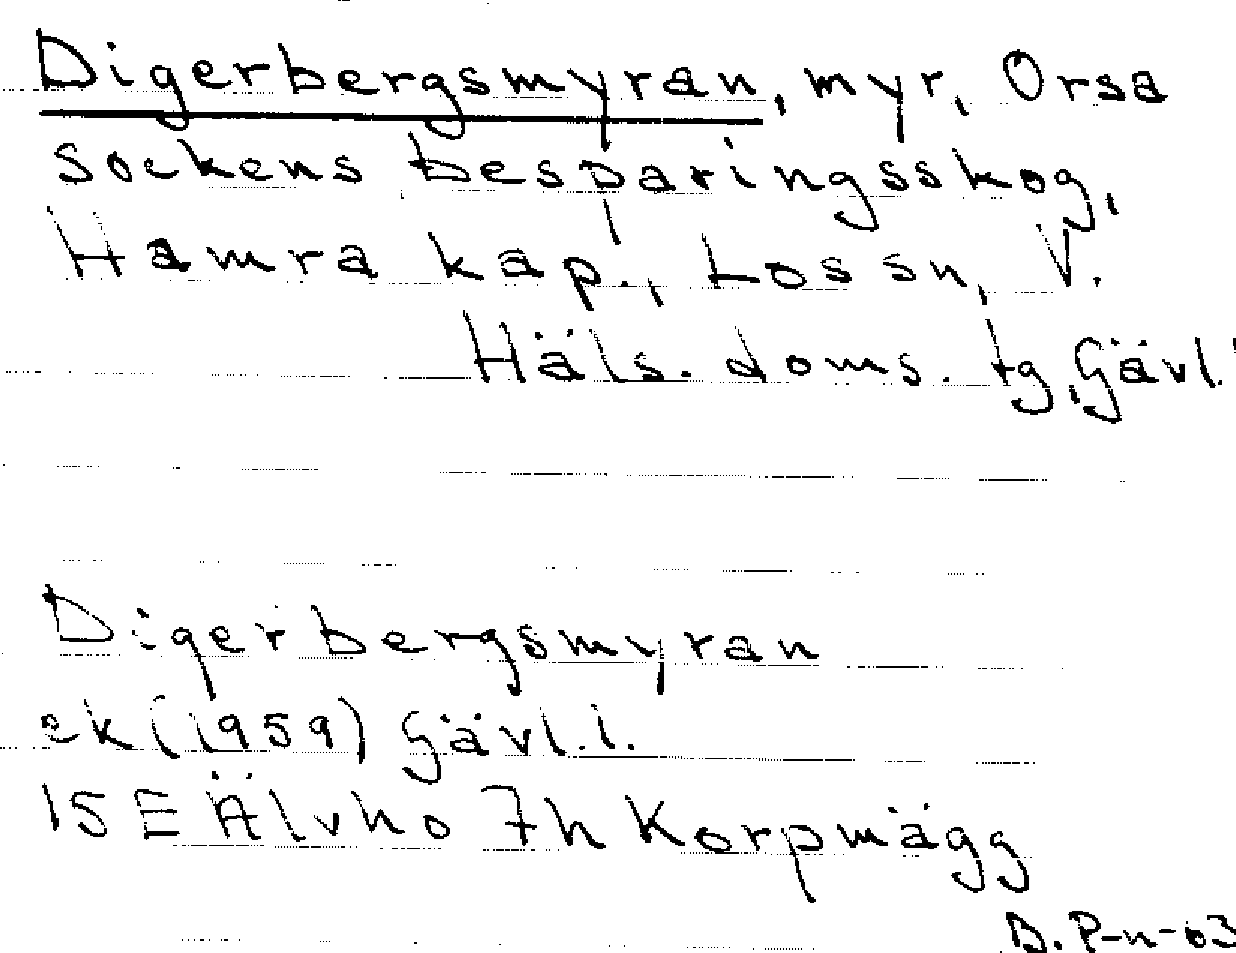 Digerbergsmyran, myr, Orsa
sockens besparingsskog,
Hamra kap., Los sn, V.
Häls. doms. tg, Gävl.
Digerbergsmyran
ek (1959) Gävl.l.
15E Älvho 7h Korpmägg
D. P-n-03